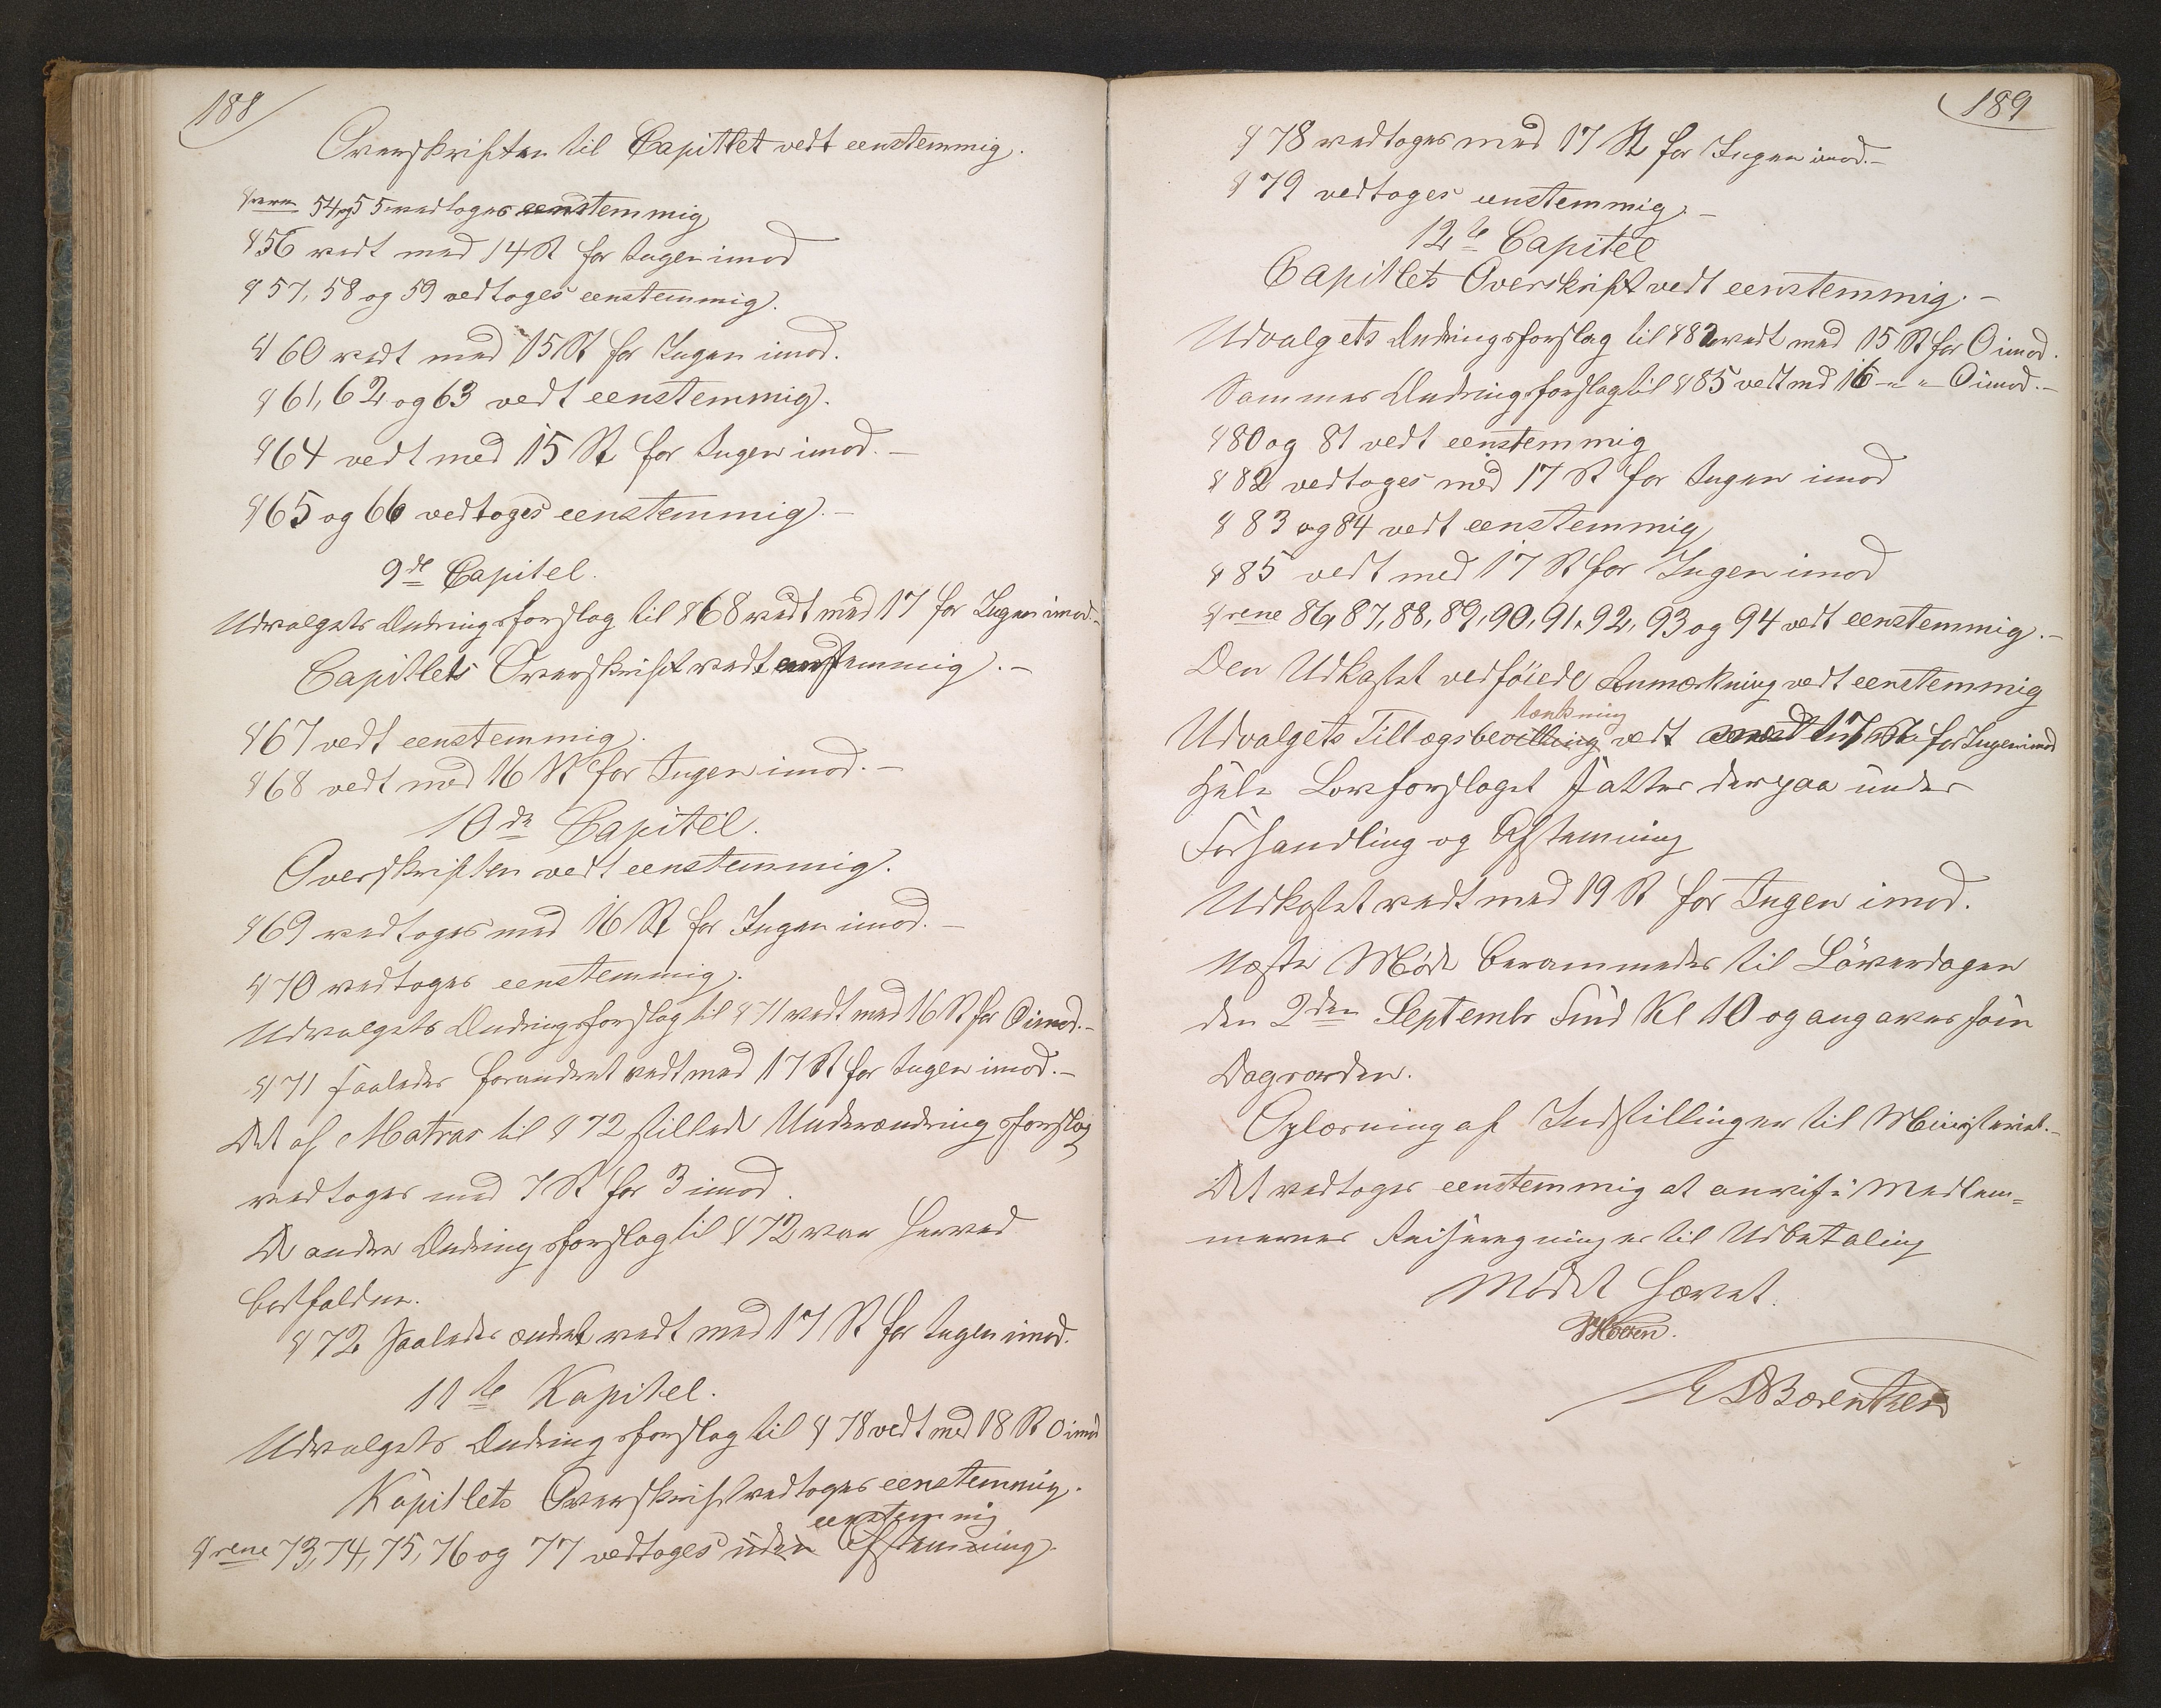 188
Overskriften til Capitlet vedt eenstemmig.
§rene 54 og 55 vedtoges eenstemmig
§ 56 vedt med 14 St for Ingen imod
§ 57, 58 og 59 vedtoges eenstemmig.
§ 60 vedt med 15 St for Ingen imod.
§ 61, 62 og 63 vedt eenstemmig.
§ 64 vedt med 15 St for Ingen imod. —
§ 65 og 66 vedtoges eenstemmig. —
9de Capitel.
Udvalgets Ændringsforslag til § 68 vedt med 17 for Ingen imod. -
Capitlets Overskrift vedt eenstemmig. —
§ 67 vedt eenstemmig.
§ 68 vedt med 16 St for Ingen imod. —
10de Capitel.
Overskriften vedt eenstemmig.
§ 69 vedtoges med 16 St for Ingen imod. —
§ 70 vedtoges eenstemmig.
Udvalgets Ændringsforslag til § 71 vedt med 16 St for 0 imod. -
§ 71 saaledes forandret vedt med 17 St for Ingen imod. —
Det af Matras til § 72 stillede Underændringsforslag
vedtoges med 7 St for 3 imod.
De andre Ændringsforslag til § 72 var herved
bortfaldne.
§ 72 saaledes ændret vedt med 17 St for Ingen imod.
11te Kapitel.
Udvalgets Ændringsforslag til § 78 vedt med 18 St 0 imod
Kapitlets Overskrift vedtoges eenstemmig.
eenstemmig
§rene 73, 74, 75, 76 og 77 vedtoges uden Afstemning.
189
§ 78 vedtoges med 17 St for Ingen imod. —
§ 79 vedtoges eenstemmig. —
12te Capitel
Capitlets Overskrift vedt eenstemmig. —
Udvalgets Ændringsforslag til § 82 vedt med 15 St for 0 imod.
Sammes Ændringsforslag til § 85 vedt md 16 - " - 0 imod. —
§ 80 og 81 vedt eenstemmig
§ 82 vedtoges med 17 St for Ingen imod
§ 83 og 84 vedt eenstemmig
§ 85 vedt med 17 St for Ingen imod
§rene 86, 87, 88, 89, 90, 91, 92, 93 og 94 vedt eenstemmig. —
Den Udkastet vedföiede Anmærkning vedt eenstemmig
tænkning
Udvalgets Tillægsbevilling vedt med 17 St for Ingen imod
Hele Lovforslaget sattes derpaa under
Forhandling og Afstemning
Udkastet vedt med 19 St for Ingen imod.
Næste Møde berammedes til Löverdagen
den 2den Septembr Kl 10 og angaves som
Dagsorden.
Oplæsning af Indstillinger til Ministeriet. —
Det vedtoges eenstemmig at anvise Medlem=
mernes Reiseregninger til Udbetaling
Mödet hævet.
HBærentsen